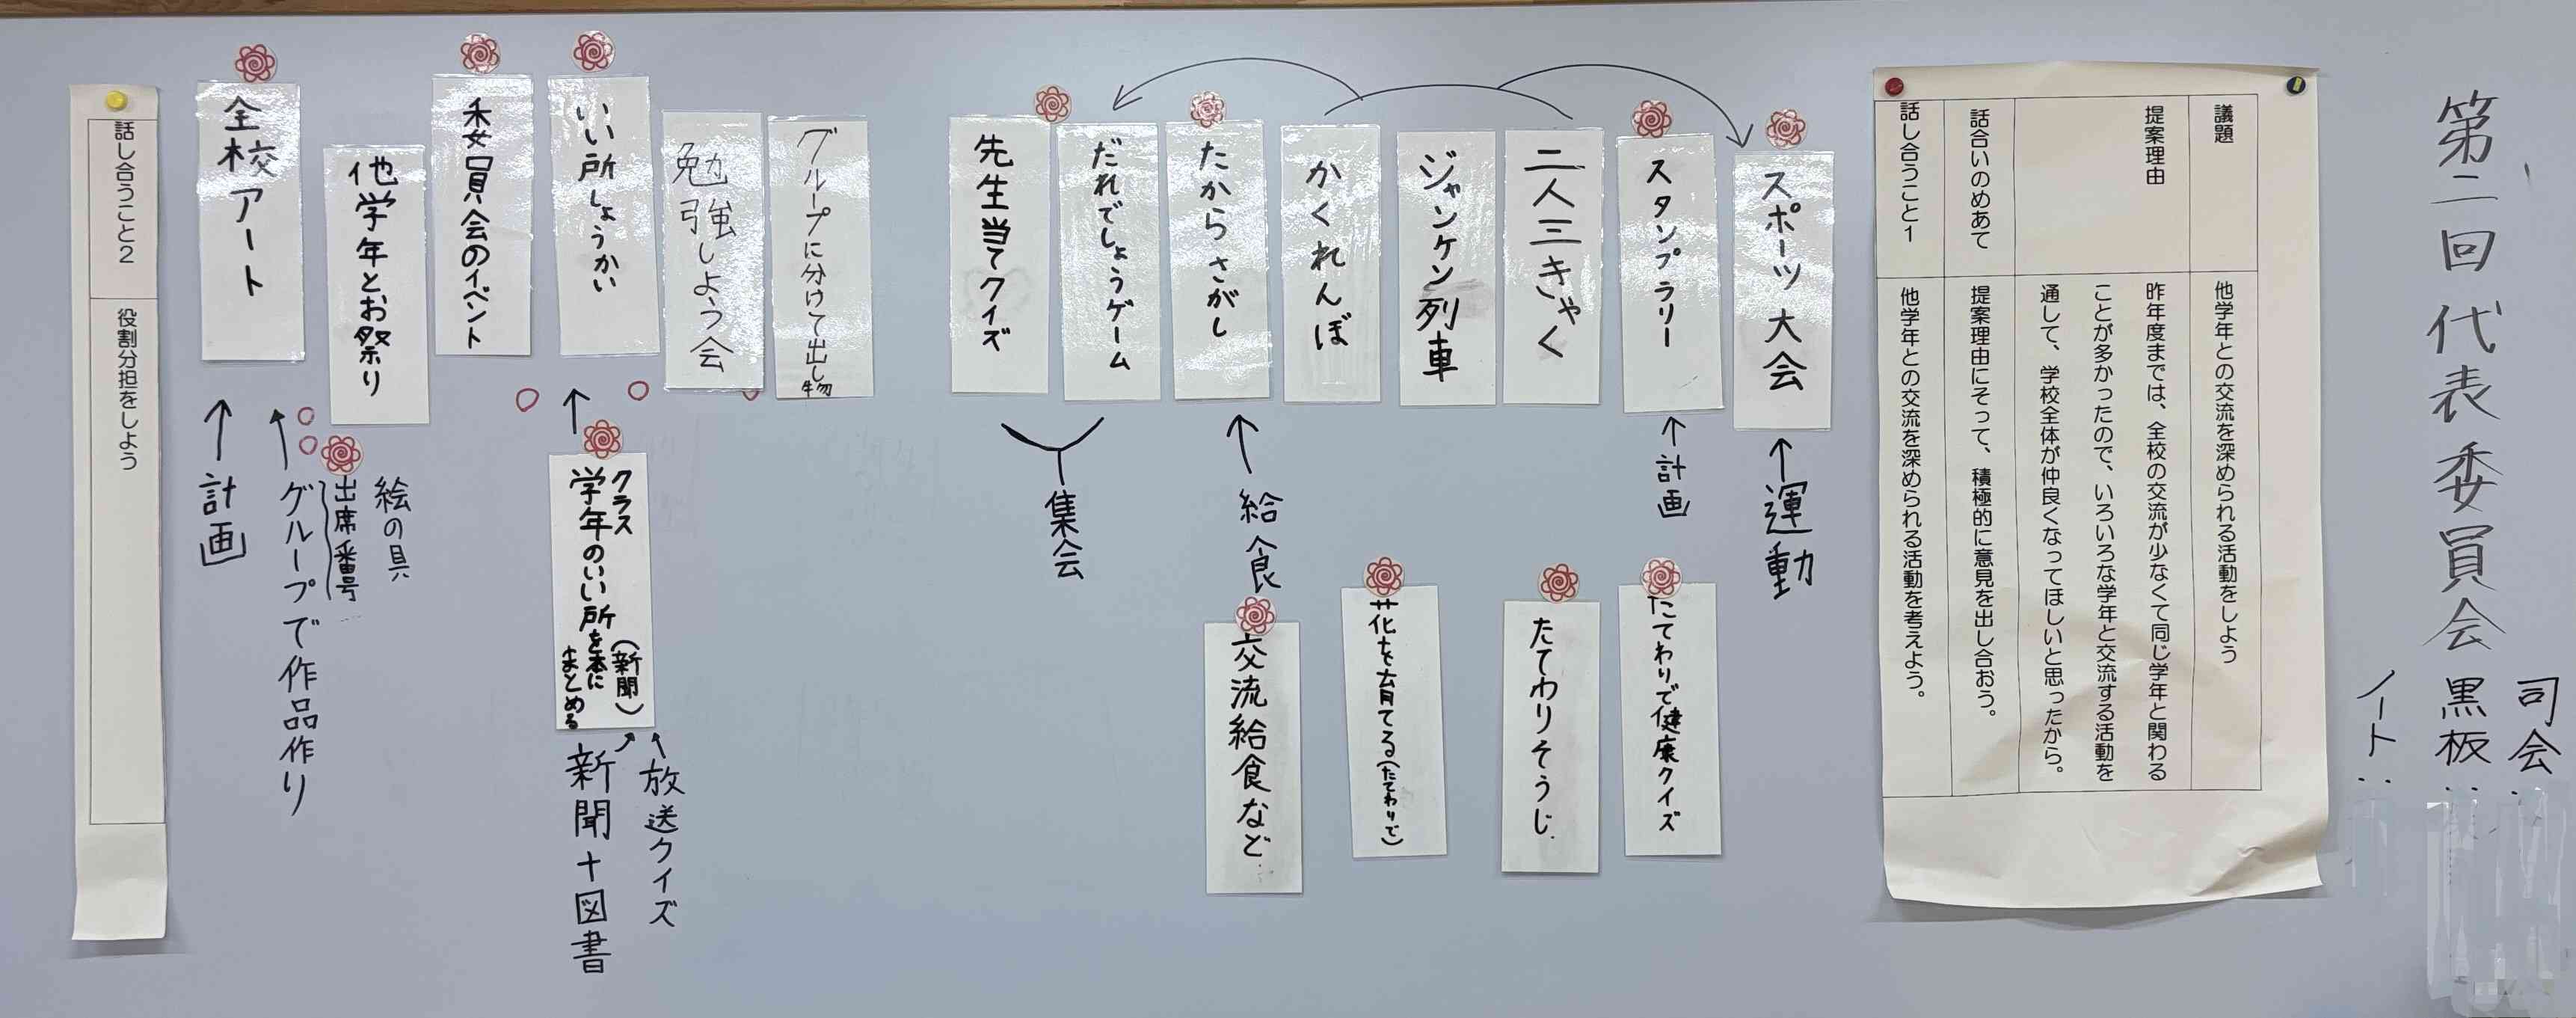 第二回代表委員会
司会:
黒板:
ノート:
議題
他学年との交流を深められる活動をしよう
提案理由
昨年度までは、全校の交流が少なくて同じ学年と関わる
ことが多かったので、いろいろな学年と交流する活動を
通して、学校全体が仲良くなってほしいと思ったから。
話合いのめあて
提案理由にそって、積極的に意見を出し合おう。
話し合うこと1
他学年との交流を深められる活動を考えよう。
スポーツ大会
運動
スタンプラリー
計画
二人三きゃく
ジャンケン列車
かくれんぼ
たからさがし
給食
だれでしょうゲーム
先生当てクイズ
集会
たてわりで健康クイズ
たてわりそうじ
花を育てる(たてわりで)
交流給食など
グループに分けて出し物
勉強しよう会
いい所しょうかい
クラス
学年のいい所を本に
まとめる
(新聞)
放送クイズ
新聞+図書
委員会のイベント
他学年とお祭り
絵の具
出席番号
グループで作品作り
全校アート
計画
話し合うこと2
役割分担をしよう